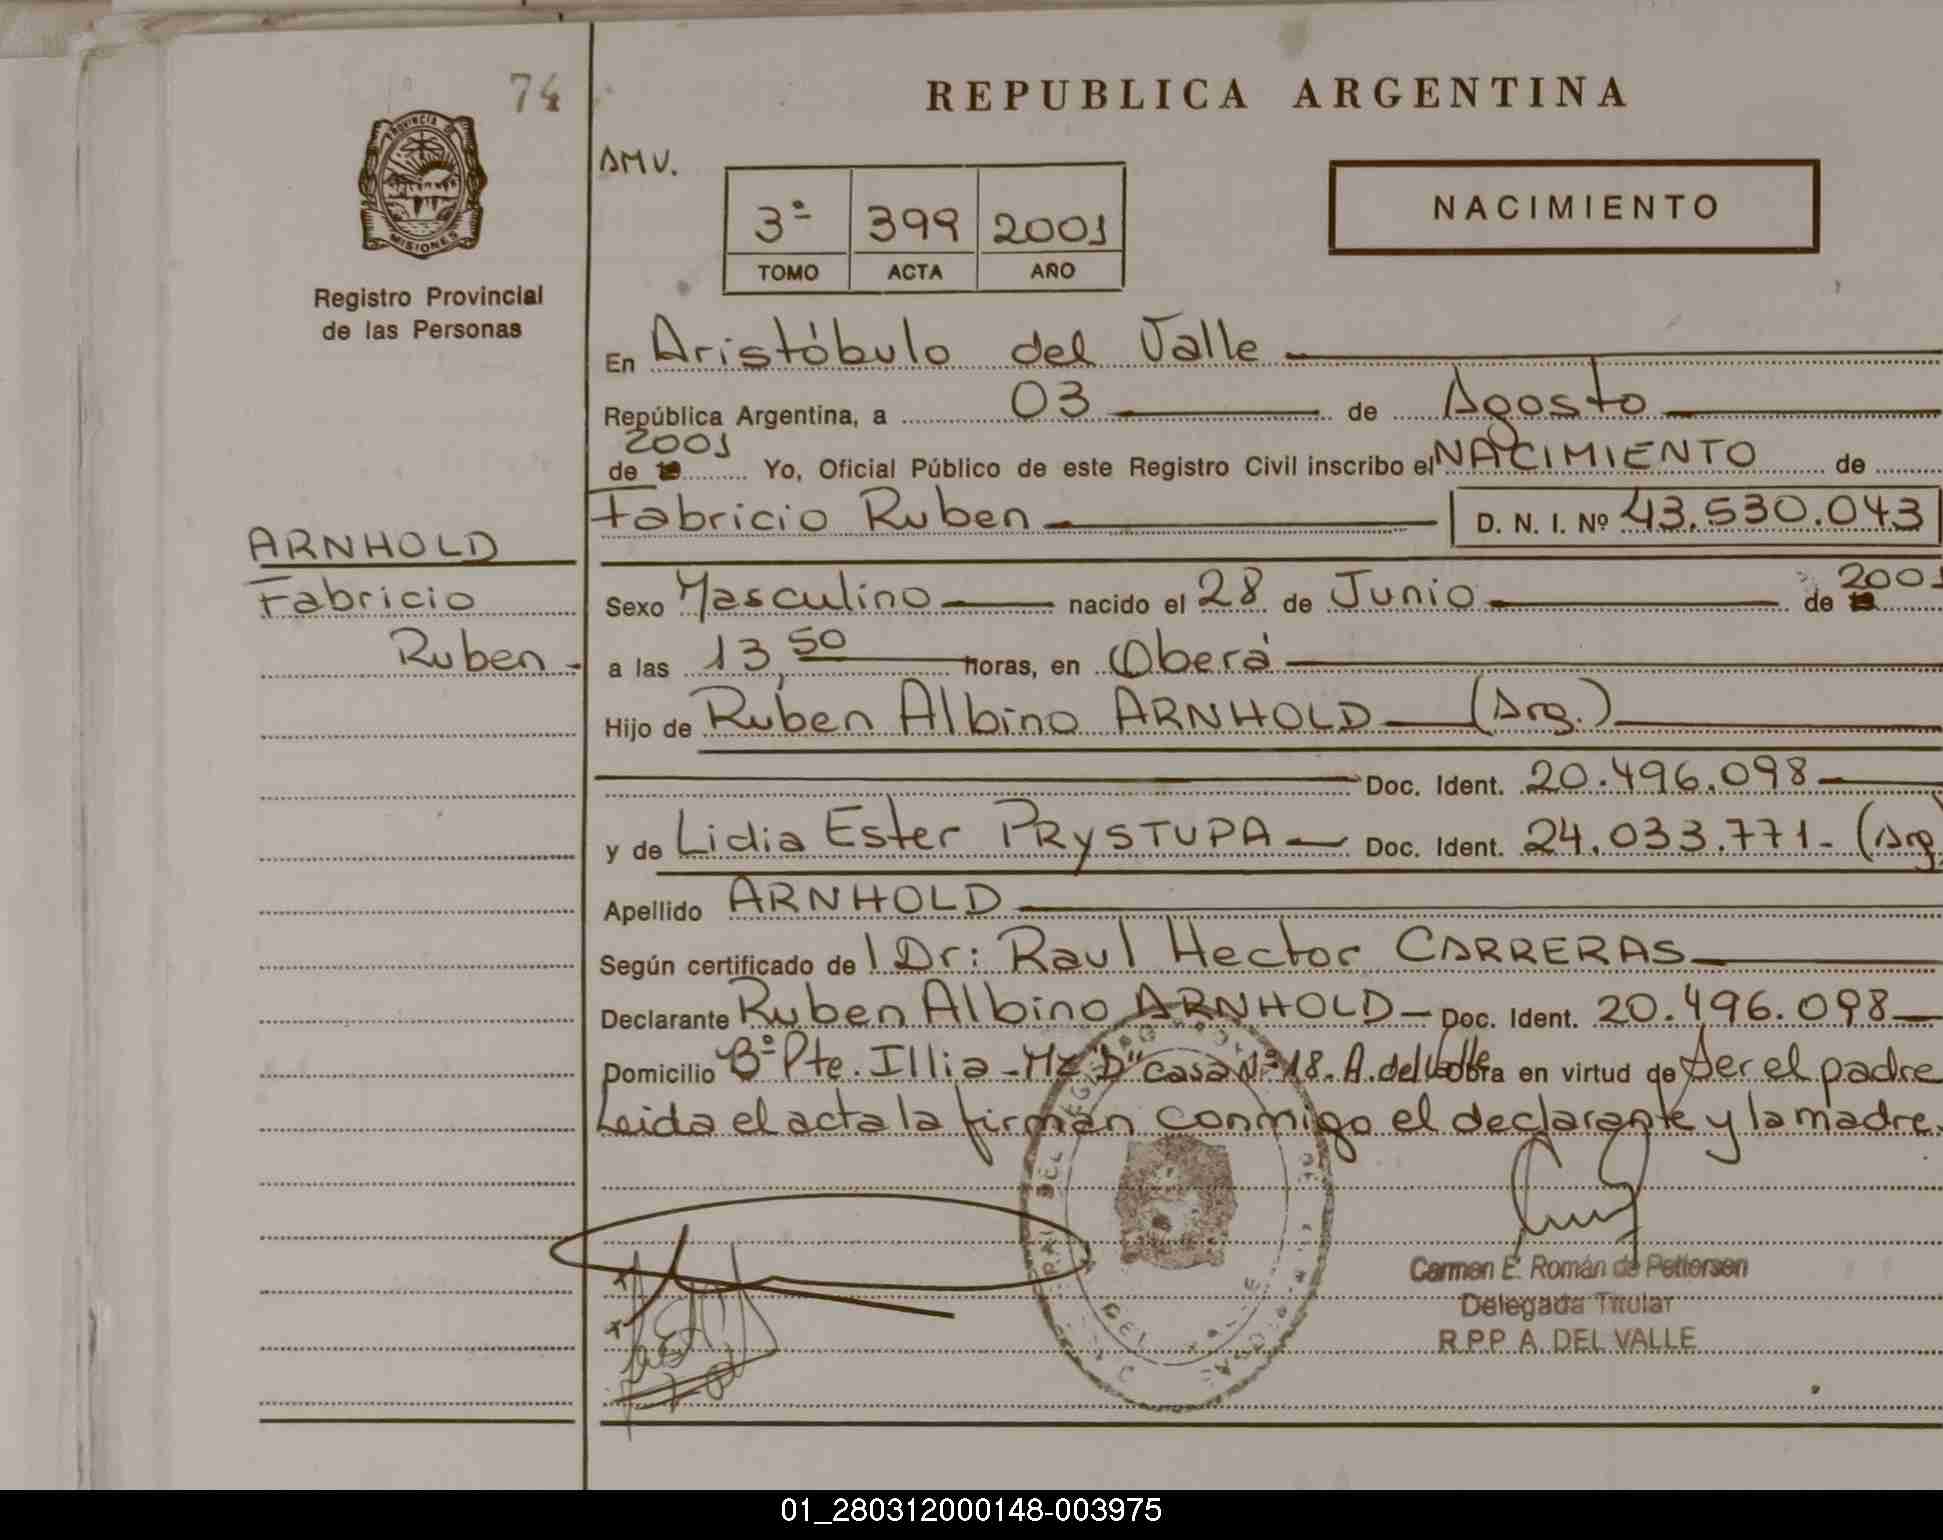 74
REPUBLICA ARGENTINA
PROVINCIA DE
MISIONES
Registro Provincial
de las Personas
AMV.
3º 399 2001
TOMO ACTA AÑO
NACIMIENTO
En Aristóbulo del Valle
República Argentina, a 03 de Agosto
2001
de 19 Yo, Oficial Público de este Registro Civil inscribo el NACIMIENTO de
Fabricio Ruben D. N. I. Nº 43.530.043
ARNHOLD
Fabricio
Ruben -
Sexo Masculino nacido el 28 de Junio de 19 2001
a las 13,50 horas, en Oberá
Hijo de Ruben Albino ARNHOLD (Arg.)
Doc. Ident. 20.496.098
y de Lidia Ester PRySTUPA Doc. Ident. 24.033.771- (Arg.)
Apellido ARNHOLD
Según certificado de l Dr: Raul Hector CARRERAS
Declarante Ruben Albino ARNHOLD Doc. Ident. 20.496.098
Domicilio Bº Pte. Illia - Mz "D" casa Nº 18. A. del Valle Obra en virtud de Ser el padre
Leida el acta la firman conmigo el declarante y la madre.
Carmen E. Román de Pettersen
Delegada Titular
R.P.P A. DEL VALLE
01_280312000148-003975